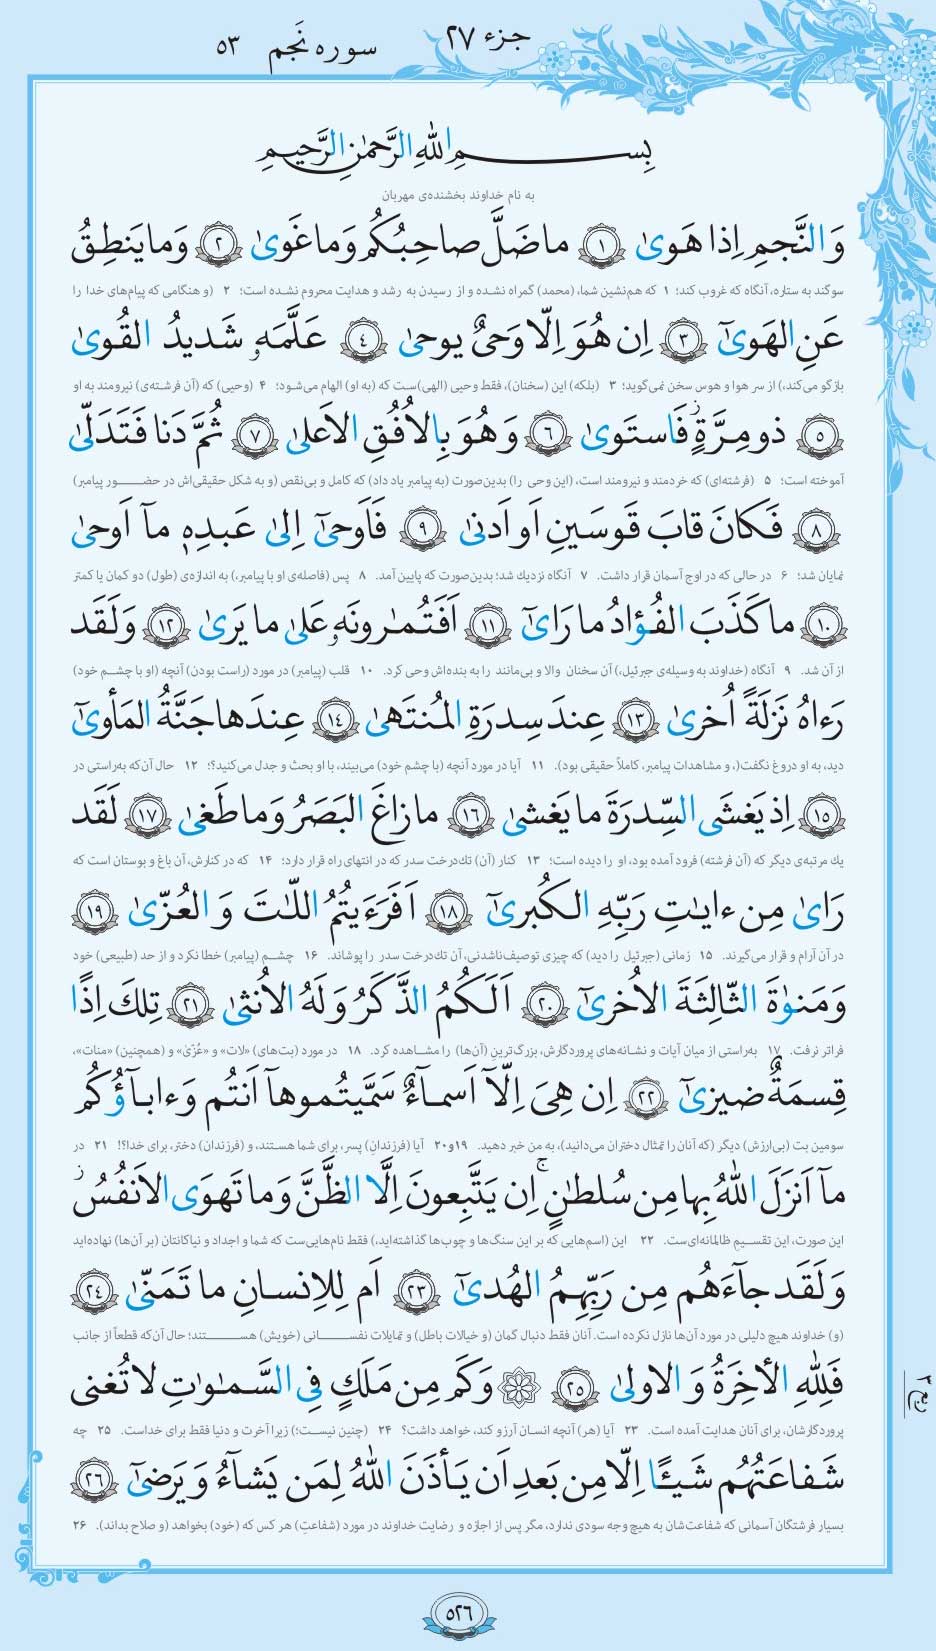 جزء ۲۷
سوره نَجم ۵۳
بِسمِ اللّٰهِ الرَّحمٰنِ الرَّحیمِ
به نام خداوند بخشنده‌ی مهربان
وَ النَّجمِ اِذا هَویٰ ﴿۱﴾ ما ضَلَّ صاحِبُکُم وَ ما غَویٰ ﴿۲﴾ وَ ما یَنطِقُ
سوگند به ستاره، آنگاه که غروب کند؛ ۱ که هم‌نشین شما، (محمد) گمراه نشده و از رسیدن به رشد و هدایت محروم نشده است؛ ۲ (و هنگامی که پیام‌های خدا را
عَنِ الهَویٰٓ ﴿۳﴾ اِن هُوَ اِلّا وَحیٌ یوحیٰ ﴿۴﴾ عَلَّمَهٗ شَدیدُ القُویٰ
بازگو می‌کند،) از سر هوا و هوس سخن نمی‌گوید؛ ۳ (بلکه) این (سخنان)، فقط وحیی (الهی)ست که (به او) الهام می‌شود؛ ۴ (وحیی) که (آن فرشته‌ی) نیرومند به او
﴿۵﴾ ذو مِرَّةٍ فَاستَویٰ ﴿۶﴾ وَ هُوَ بِالاُفُقِ الاَعلیٰ ﴿۷﴾ ثُمَّ دَنا فَتَدَلّیٰ
آموخته است؛ ۵ (فرشته‌ای) که خردمند و نیرومند است، (این وحی را) بدین‌صورت (به پیامبر یاد داد) که کامل و بی‌نقص (و به شکل حقیقی‌اش در حضور پیامبر)
﴿۸﴾ فَکانَ قابَ قَوسَینِ اَو اَدنیٰ ﴿۹﴾ فَاَوحیٰٓ اِلیٰ عَبدِهٖ مآ اَوحیٰ
نمایان شد؛ ۶ در حالی که در اوج آسمان قرار داشت. ۷ آنگاه نزدیک شد؛ بدین‌صورت که پایین آمد. ۸ پس (فاصله‌ی او با پیامبر،) به اندازه‌ی (طول) دو کمان یا کمتر
﴿۱۰﴾ ما کَذَبَ الفُؤادُ ما رَایٰٓ ﴿۱۱﴾ اَفَتُمٰرونَهٗ عَلیٰ ما یَریٰ ﴿۱۲﴾ وَ لَقَد
از آن شد. ۹ آنگاه (خداوند به وسیله‌ی جبرئیل،) آن سخنان والا و بی‌مانند را به بنده‌اش وحی کرد. ۱۰ قلب (پیامبر) در مورد (راست بودن) آنچه (او با چشم خود)
رَءاهُ نَزلَةً اُخریٰ ﴿۱۳﴾ عِندَ سِدرَةِ المُنتَهیٰ ﴿۱۴﴾ عِندَها جَنَّةُ المَأویٰٓ
دید، به او دروغ نگفت(، و مشاهدات پیامبر، کاملاً حقیقی بود). ۱۱ آیا در مورد آنچه (با چشم خود) می‌بیند، با او بحث و جدل می‌کنید؟؛ ۱۲ حال آن‌که به‌راستی در
﴿۱۵﴾ اِذ یَغشَی السِّدرَةَ ما یَغشیٰ ﴿۱۶﴾ ما زاغَ البَصَرُ وَ ما طَغیٰ ﴿۱۷﴾ لَقَد
یك مرتبه‌ی دیگر که (آن فرشته) فرود آمده بود، او را دیده است؛ ۱۳ کنار (آن) تك‌درخت سدر که در انتهای راه قرار دارد؛ ۱۴ که در کنارش، آن باغ و بوستان است که
رَایٰ مِن ءایٰتِ رَبِّهِ الکُبریٰٓ ﴿۱۸﴾ اَفَرَءَیتُمُ اللّٰتَ وَ العُزّیٰ ﴿۱۹﴾
در آن آرام و قرار می‌گیرند. ۱۵ زمانی (جبرئیل را دید) که چیزی توصیف‌ناشدنی، آن تك‌درخت سدر را پوشاند. ۱۶ چشم (پیامبر) خطا نکرد و از حد (طبیعی) خود
وَ مَنوٰةَ الثّالِثَةَ الاُخریٰٓ ﴿۲۰﴾ اَلَکُمُ الذَّکَرُ وَ لَهُ الاُنثیٰ ﴿۲۱﴾ تِلكَ اِذًا
فراتر نرفت. ۱۷ به‌راستی از میان آیات و نشانه‌های پروردگارش، بزرگ‌ترین (آن‌ها) را مشاهده کرد. ۱۸ در مورد (بت‌های) «لات» و «عُزّیٰ» و (همچنین) «منات»،
قِسمَةٌ ضیزیٰٓ ﴿۲۲﴾ اِن هِیَ اِلّآ اَسمآءٌ سَمَّیتُموهآ اَنتُم وَ ءابآؤُکُم
سومین بت (بی‌ارزش) دیگر (که آنان را تمثال دختران می‌دانید)، به من خبر دهید. ۱۹و۲۰ آیا (فرزندان) پسر، برای شما هستند، و (فرزندان) دختر، برای خدا؟! ۲۱ در
مآ اَنزَلَ اللّٰهُ بِها مِن سُلطٰنٍ ۚ اِن یَتَّبِعونَ اِلَّا الظَّنَّ وَ ما تَهوَی الاَنفُسُ ز
این صورت، این تقسیمِ ظالمانه‌ای‌ست. ۲۲ این (اسم‌هایی که بر این سنگ‌ها و چوب‌ها گذاشته‌اید،) فقط نام‌هایی‌ست که شما و اجداد و نیاکانتان (بر آن‌ها) نهاده‌اید
وَ لَقَد جآءَهُم مِن رَبِّهِمُ الهُدیٰٓ ﴿۲۳﴾ اَم لِلاِنسانِ ما تَمَنّیٰ ﴿۲۴﴾
(و) خداوند هیچ دلیلی در مورد آن‌ها نازل نکرده است. آنان فقط دنبال گمان (و خیالات باطل) و تمایلات نفسانی (خویش) هستند؛ حال آن‌که قطعاً از جانب
فَلِلّٰهِ الأخِرَةُ وَ الاولیٰ ﴿۲۵﴾ ۞ وَ کَم مِن مَلَكٍ فِی السَّمٰوٰتِ لا تُغنی
پروردگارشان، برای آنان هدایت آمده است. ۲۳ آیا (هر) آنچه انسان آرزو کند، خواهد داشت؟ ۲۴ (چنین نیست؛) زیرا آخرت و دنیا فقط برای خداست. ۲۵ چه
شَفاعَتُهُم شَیـًٔا اِلّا مِن بَعدِ اَن یَأذَنَ اللّٰهُ لِمَن یَشآءُ وَ یَرضیٰٓ ﴿۲۶﴾
بسیار فرشتگان آسمانی که شفاعت‌شان به هیچ وجه سودی ندارد، مگر پس از اجازه و رضایت خداوند در مورد (شفاعتِ) هر کس که (خود) بخواهد (و صلاح بداند). ۲۶
ربع ۲
۵۲۶